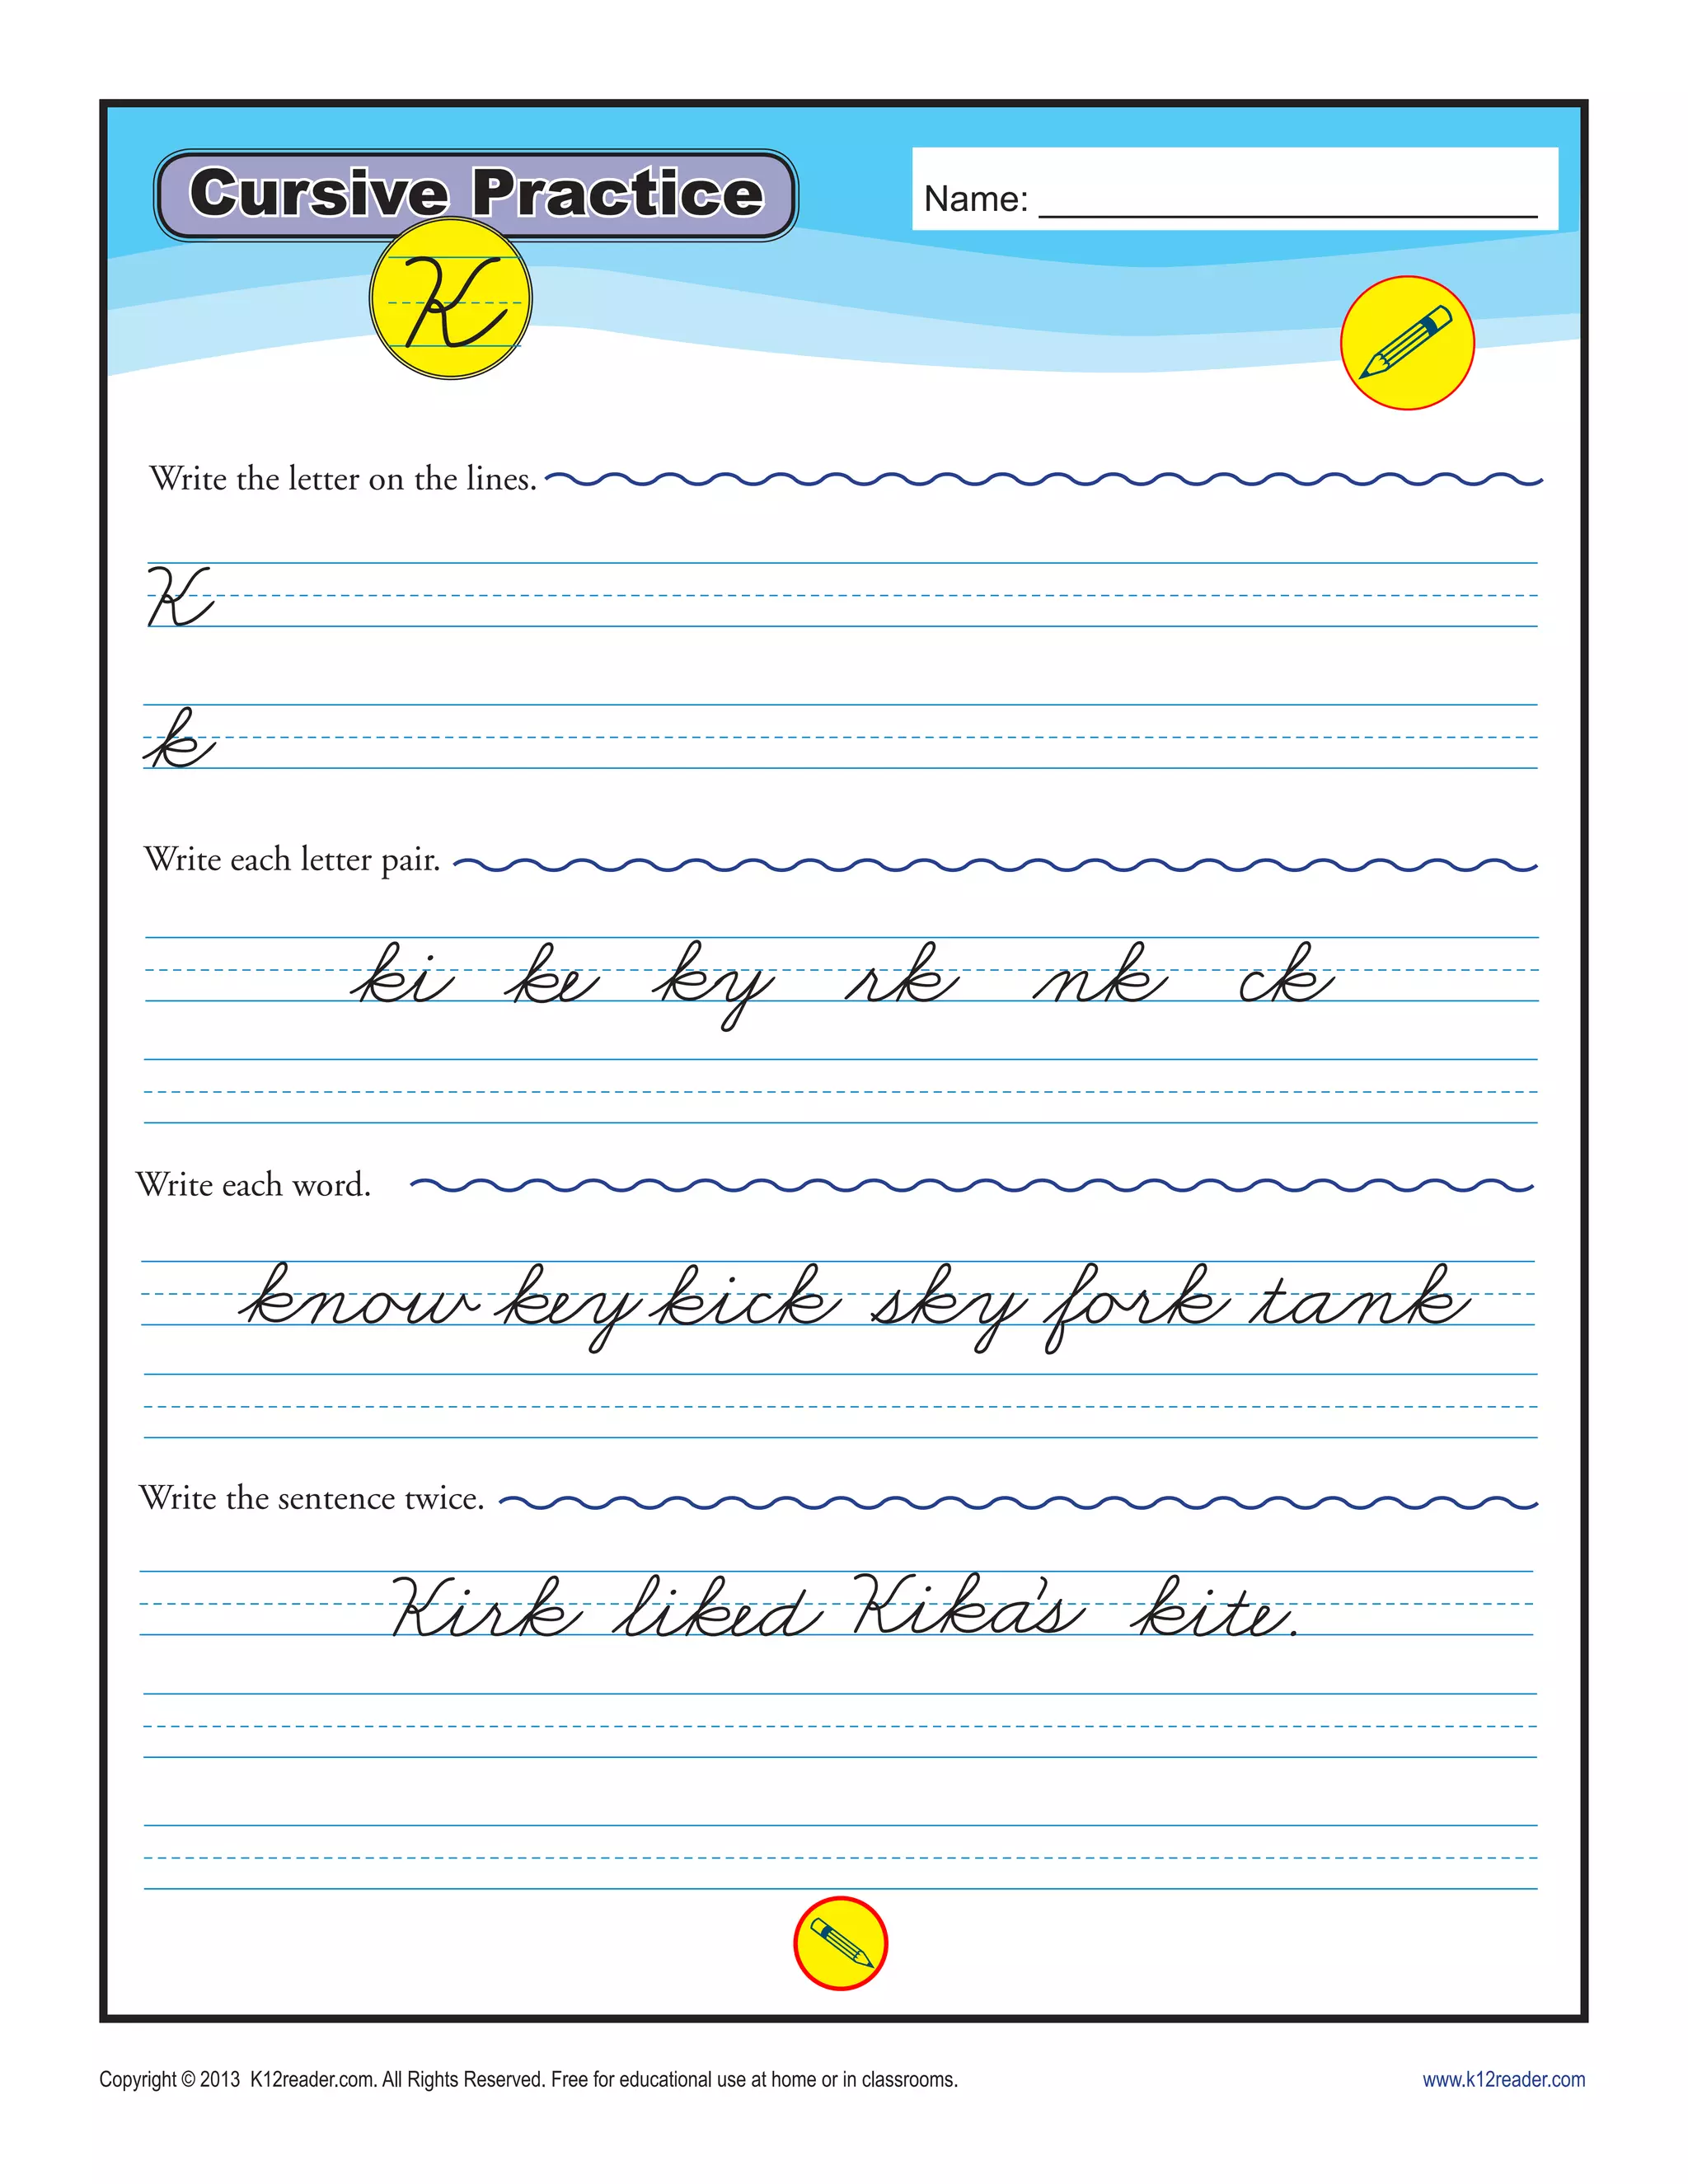 Cursive Practice
Name:
K
Write the letter on the lines.
K
k
Write each letter pair.
ki ke ky rk nk ck
Write each word.
know key kick sky fork tank
Write the sentence twice.
Kirk liked Kika's kite.
Copyright © 2013 K12reader.com. All Rights Reserved. Free for educational use at home or in classrooms.
www.k12reader.com